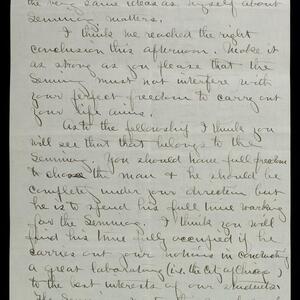 the very same ideas as myself about
Seminary matters.
I think we reached the right
conclusion this afternoon. Make it
as strong as you please that the
Seminary must not interfere with
your perfect freedom to carry out
your life aims.
As to the fellowship I think you
will see that that belongs to the
Seminary. You should have full freedom
to choose the man & he should be
completely under your direction but
he is to spend his full time working
for the Seminary. I think you will
find his time fully occupied if he
carries out your notions in conducting
a great laboratory (i.e. the City of Chicago)
to the best interests of our students.